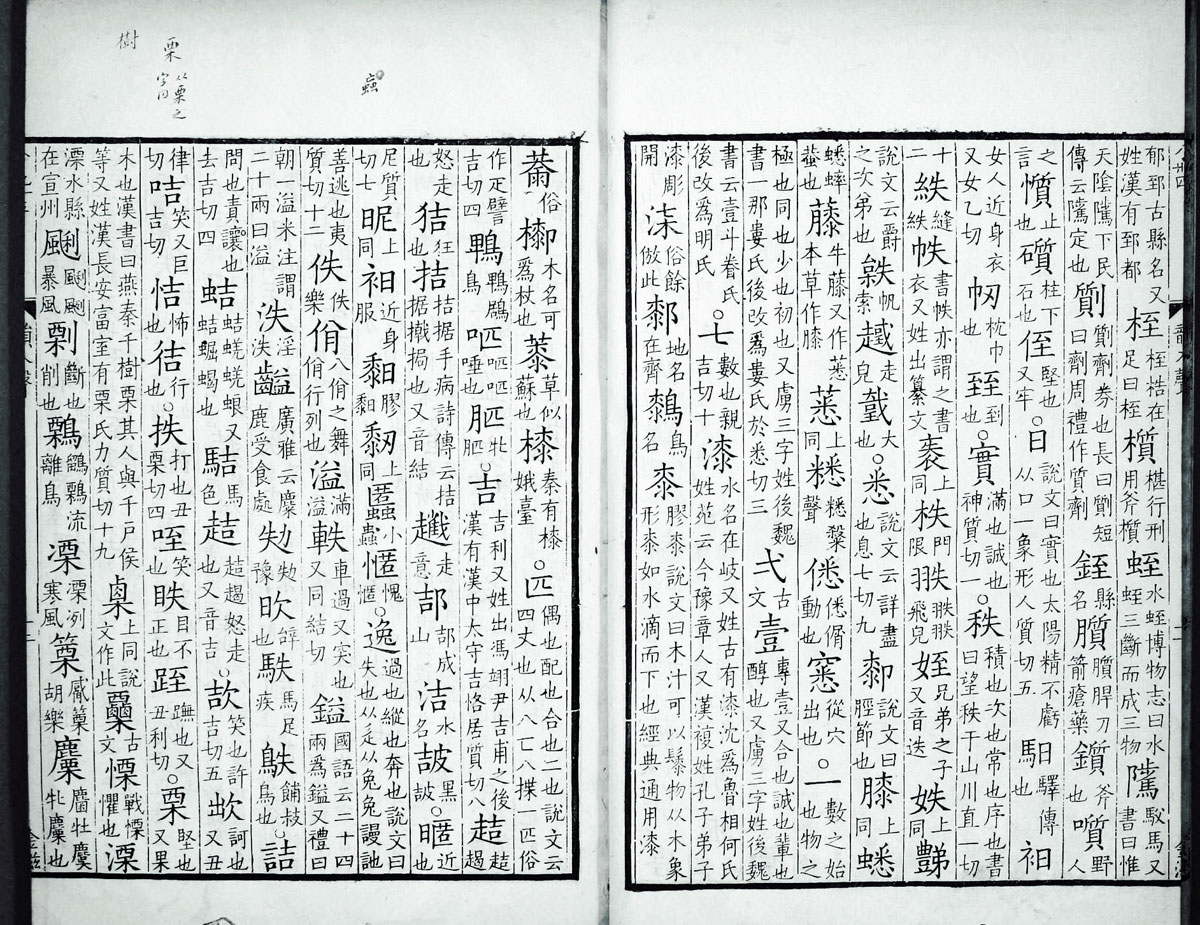 郁郅古縣名又姓漢有郅都 桎桎梏在足曰桎 櫍椹行刑用斧櫍 蛭水蛭博物志曰水蛭三斷而成三物 騭馭馬又書曰惟
天陰騭下民傳云騭定也 劕劕劑券也長曰劕短曰劑周禮作質劑 銍縣名 刀箭瘡藥 鑕斧也 㗧野人
之言 懫止也 礩柱下石也 侄堅也又牢也○日說文曰實也太陽精不虧从口一象形人質切五 馹驛傳也 衵
女人近身衣又女乙切 枕巾也 臸到也○實滿也誠也神質切一○秩積也次也常也序也書曰望秩于山川直一切
十 紩縫紩 帙書帙亦謂之書衣又姓出纂文 袠上同 柣門限 翐翐翐飛皃 姪兄弟之子又音迭 妷上同 豑
說文云爵之次弟也 帆索 走皃 戜大也○悉說文云詳盡也息七切九 厀說文曰脛節也 膝上同 蟋
蟋蟀蛬也 藤牛藤又作本草作膝 上同 聲 僁動也 窸從穴出也○一數之始也物之
極也同也少也初也又虜三字姓後魏書一那婁氏後改爲婁氏於悉切三 弌古文 壹專壹又合也誠也輩也醇也又虜三字姓後魏
書云壹斗眷氏後改爲明氏○七數也親吉切十 漆水名在岐又姓古有漆沈爲魯相何氏姓苑云今豫章人又漢複姓孔子弟子
漆彫開 柒俗餘倣此 地名在齊 鳥名 桼膠桼說文曰木汁可以髹物从木象形桼如水滴而下也經典通用漆
俗 木名可爲杖也 草似蘇也 秦有娥臺○匹偶也配也合也二也說文云四丈也从八匸八揲一匹俗
作疋譬吉切四 鴄鳥 㕧㕧㕧唾也 牝○吉吉利又姓出馮翊尹吉甫之後漢有漢中太守吉恪居質切八 趌趌趨
怒走也 狤狂也 拮拮据手病詩傳云拮据撠挶也又音結 走意 郆郆成山 洁水名 黑○暱近也
尼質切七 昵上同 衵近身服 䵒膠䵒 䵑上同 䘌小蟲 愧○逸過也縱也奔也說文曰失也从辵从兔兔謾訑
善逃也夷質切十二 佚佚樂 佾八佾之舞佾行列也 溢滿溢 軼車過又突也又同結切 鎰國語云二十四兩爲鎰又禮曰
朝一溢米注謂二十兩曰溢 泆淫泆 齸廣雅云麋鹿受食處 劮劮豫 欥辝也 駃馬足疾 鴃鋪豉鳥也○詰
問也責讓也去吉切四 蛣蛣蜣蜋又蛣蝠蝎也 馬色 趌趌趨怒走也又音吉○欯笑也許吉切五 訶也又丑
律切 咭笑又巨吉切 恄怖也 行也○抶打也丑栗切四 咥笑也 眣目不正也 跮踱也又丑利切○栗堅也又果
木也漢書曰燕秦千樹栗其人與千戶侯等又姓漢長安富室有栗氏力質切十九 㮚上同說文作此 古文 慄戰慄懼也 溧
溧水縣在宣州 颲颲颲暴風 削斷也 鷅鶹鷅流離鳥 凓凓冽寒風 篥觱篥胡樂 麜麕牡麜牝麜也
蟲
栗
从栗之
字同
樹